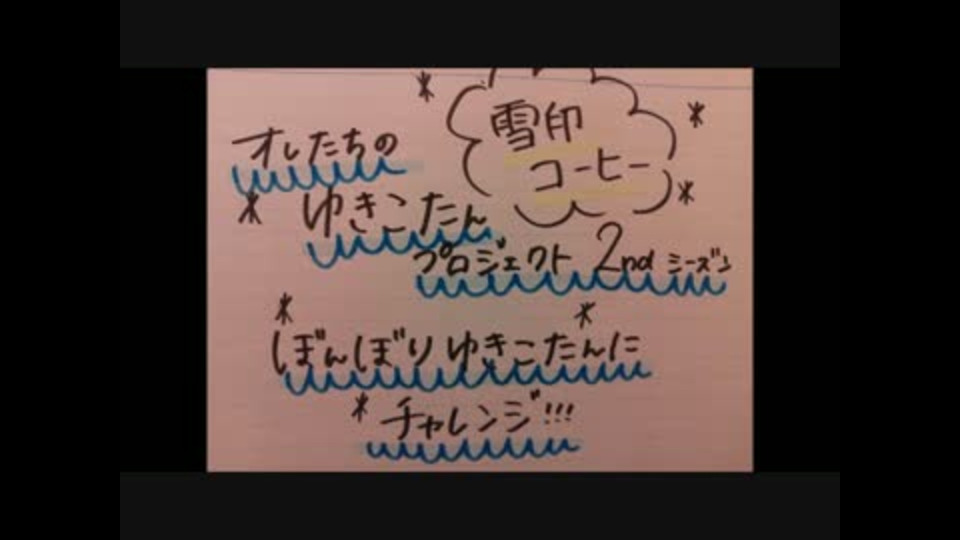 雪印
コーヒー
オレたちの
ゆきこたん
プロジェクト 2nd シーズン
ぼんぼりゆきこたんに
チャレンジ!!!